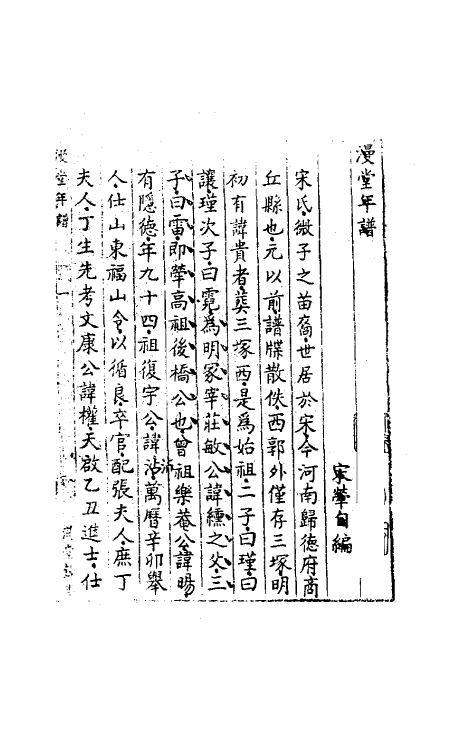 漫堂年譜
宋犖自編
宋氏微子之苗裔世居於宋今河南歸德府商
丘縣也元以前譜牒散佚西郭外僅存三塚明
初有諱貴者葬三塚西是爲始祖二子曰瑾曰
讓瑾次子曰霓爲明冢宰莊敏公諱纁之父三
子曰雷即犖高祖後橋公也曾祖樂菴公諱暘
有隱德年九十四祖復宇公諱沾萬曆辛卯舉
人仕山東福山令以循良卒官配張夫人庶丁
夫人丁生先考文康公諱權天啟乙丑進士仕
漫堂年譜